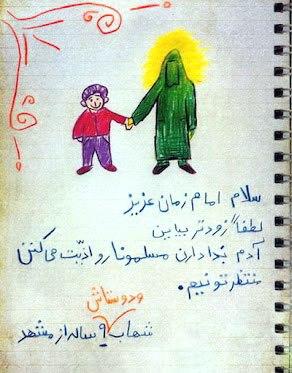 سلام امام زمان عزیز
لطفاً زودتر بیاین
آدم بَدا دارن مسلمونا رو اذیّت می کنن
منتظرتونیم.
و دوستاش
شهاب ۹ ساله از مشهد